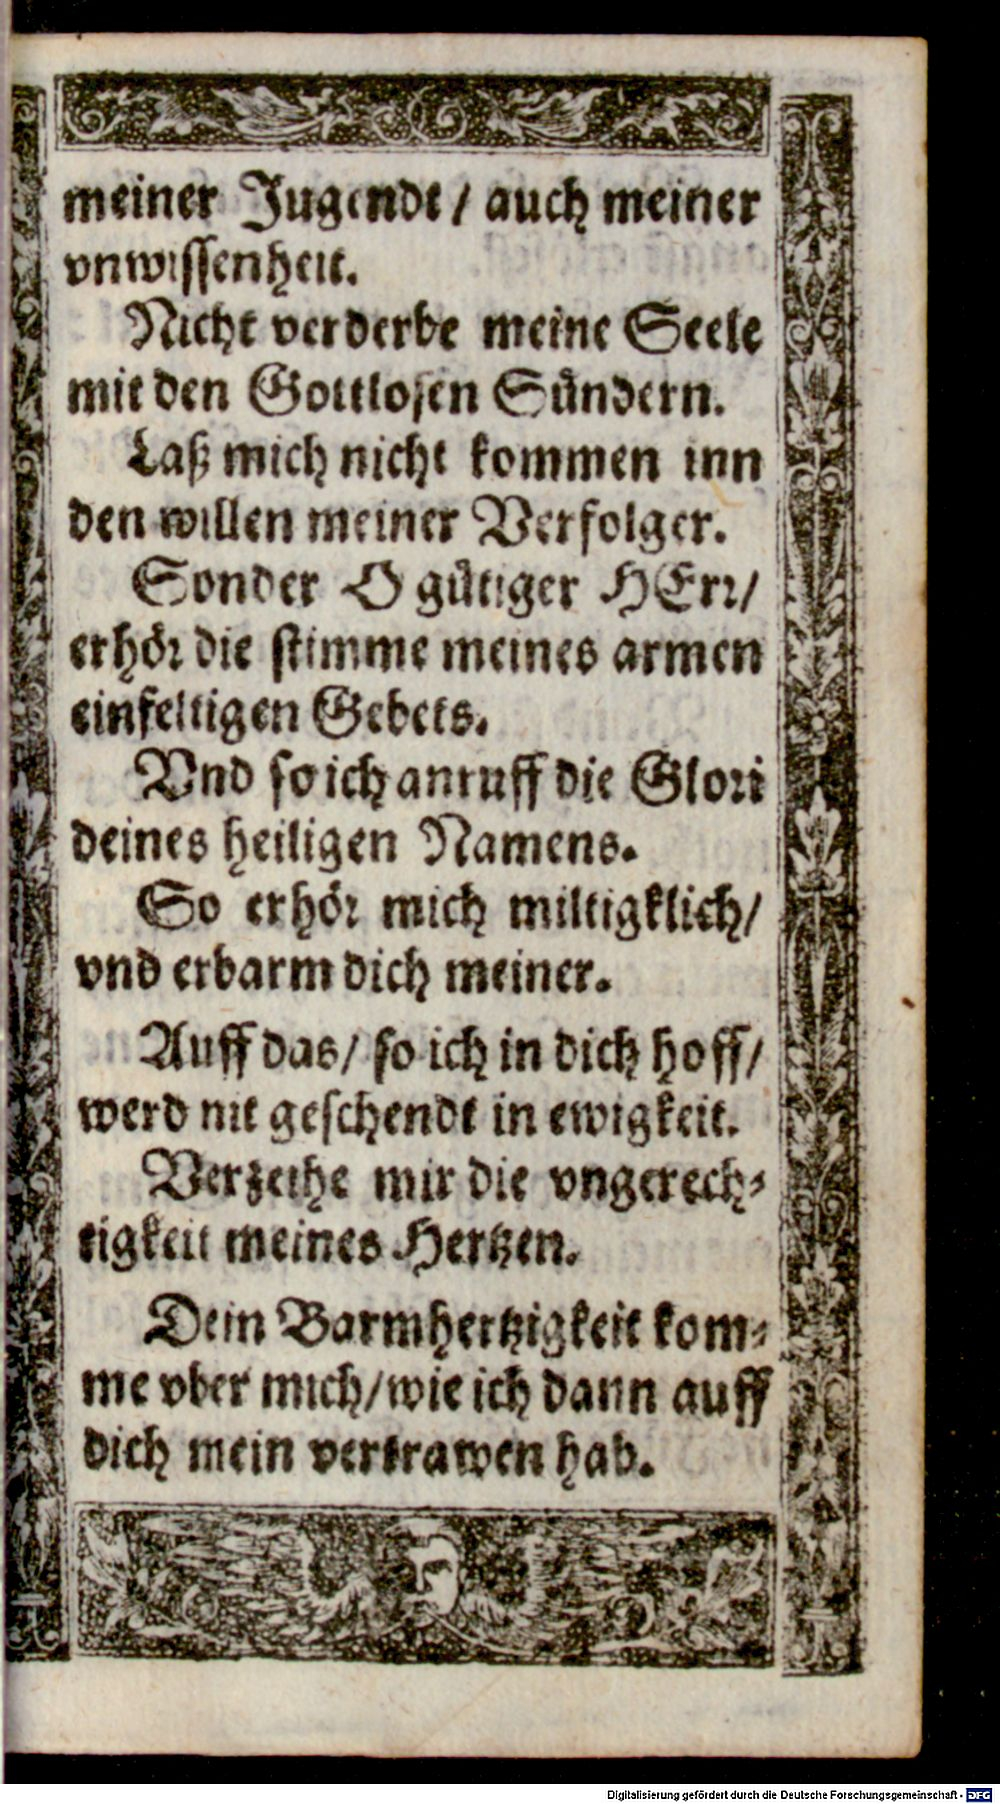 meiner Jugendt / auch meiner
vnwissenheit.
Nicht verderbe meine Seele
mit den Gottlosen Sündern.
Laß mich nicht kommen inn
den willen meiner Verfolger.
Sonder O gütiger HErr/
erhör die stimme meines armen
einfeltigen Gebets.
Vnd so ich anruff die Glori
deines heiligen Namens.
So erhör mich miltigklich/
vnd erbarm dich meiner.
Auff das/ so ich in dich hoff/
werd nit geschendt in ewigkeit.
Verzeihe mir die vngerech-
tigkeit meines Hertzen.
Dein Barmhertzigkeit kom-
me vber mich/wie ich dann auff
dich mein vertrawen hab.
Digitalisierung gefördert durch die Deutsche Forschungsgemeinschaft - DFG